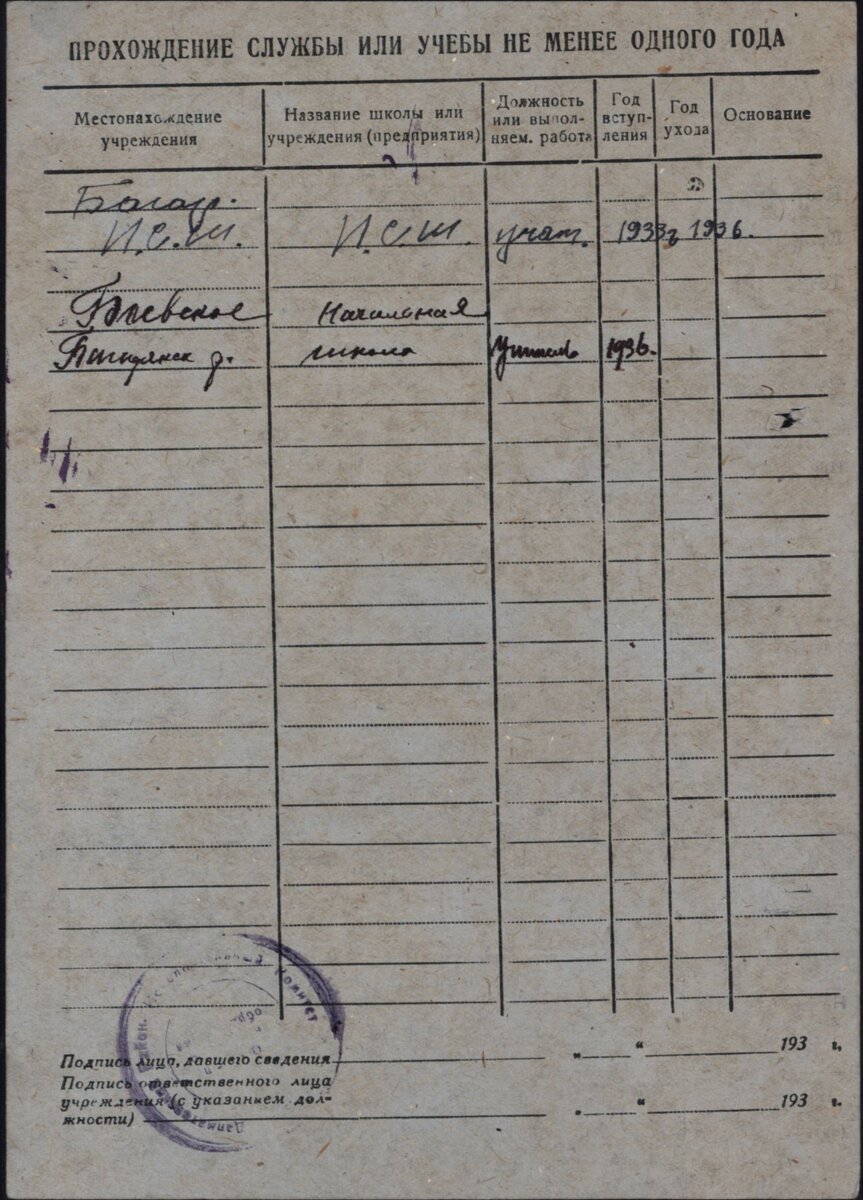 ПРОХОЖДЕНИЕ СЛУЖБЫ ИЛИ УЧЕБЫ НЕ МЕНЕЕ ОДНОГО ГОДА
Местонахождение учреждения
Название школы или учреждения (предприятия)
Должность или выполняем. работа
Год вступления
Год ухода
Основание
Багар.
Н.С.Ш. Н.С.Ш. учит. 1933г 1936.
Начальная
школа Учитель 1936.
Исполнительный Комитет
Подпись лица, давшего сведения " " 193 г.
Подпись ответственного лица
учреждения (с указанием дол-
жности) " " 193 г.